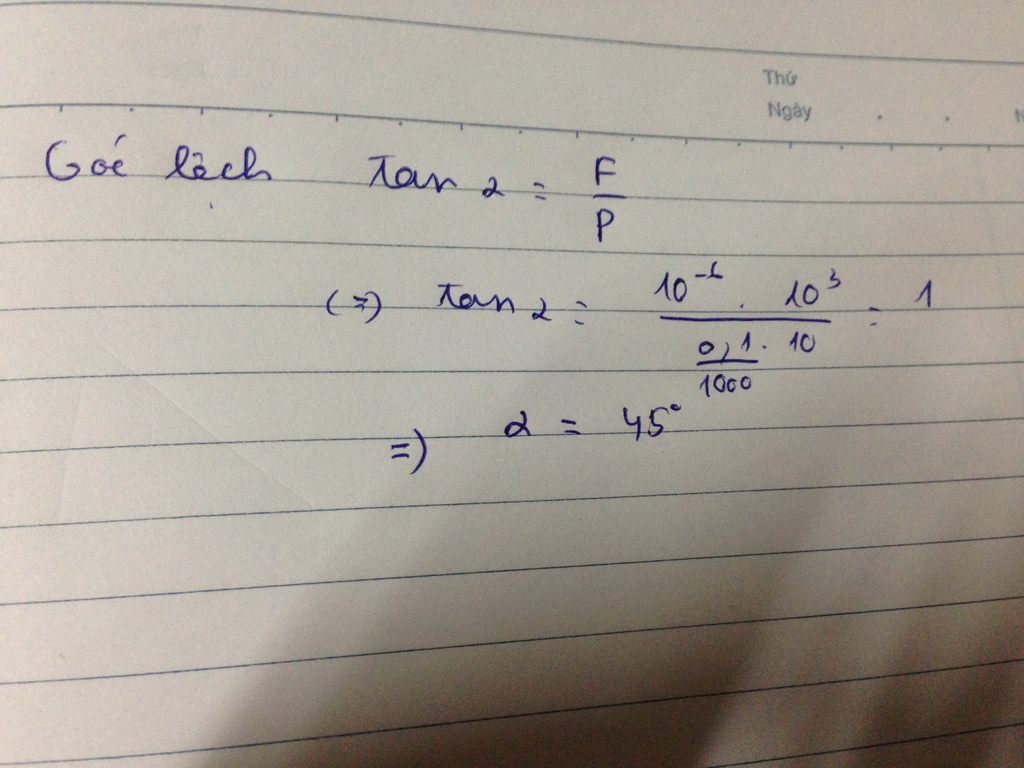 Thứ
Ngày
Góc lệch tan α = F/P
(=) tan α = (10^-6 · 10^3)/((0,1/1000) · 10) = 1
=) α = 45°